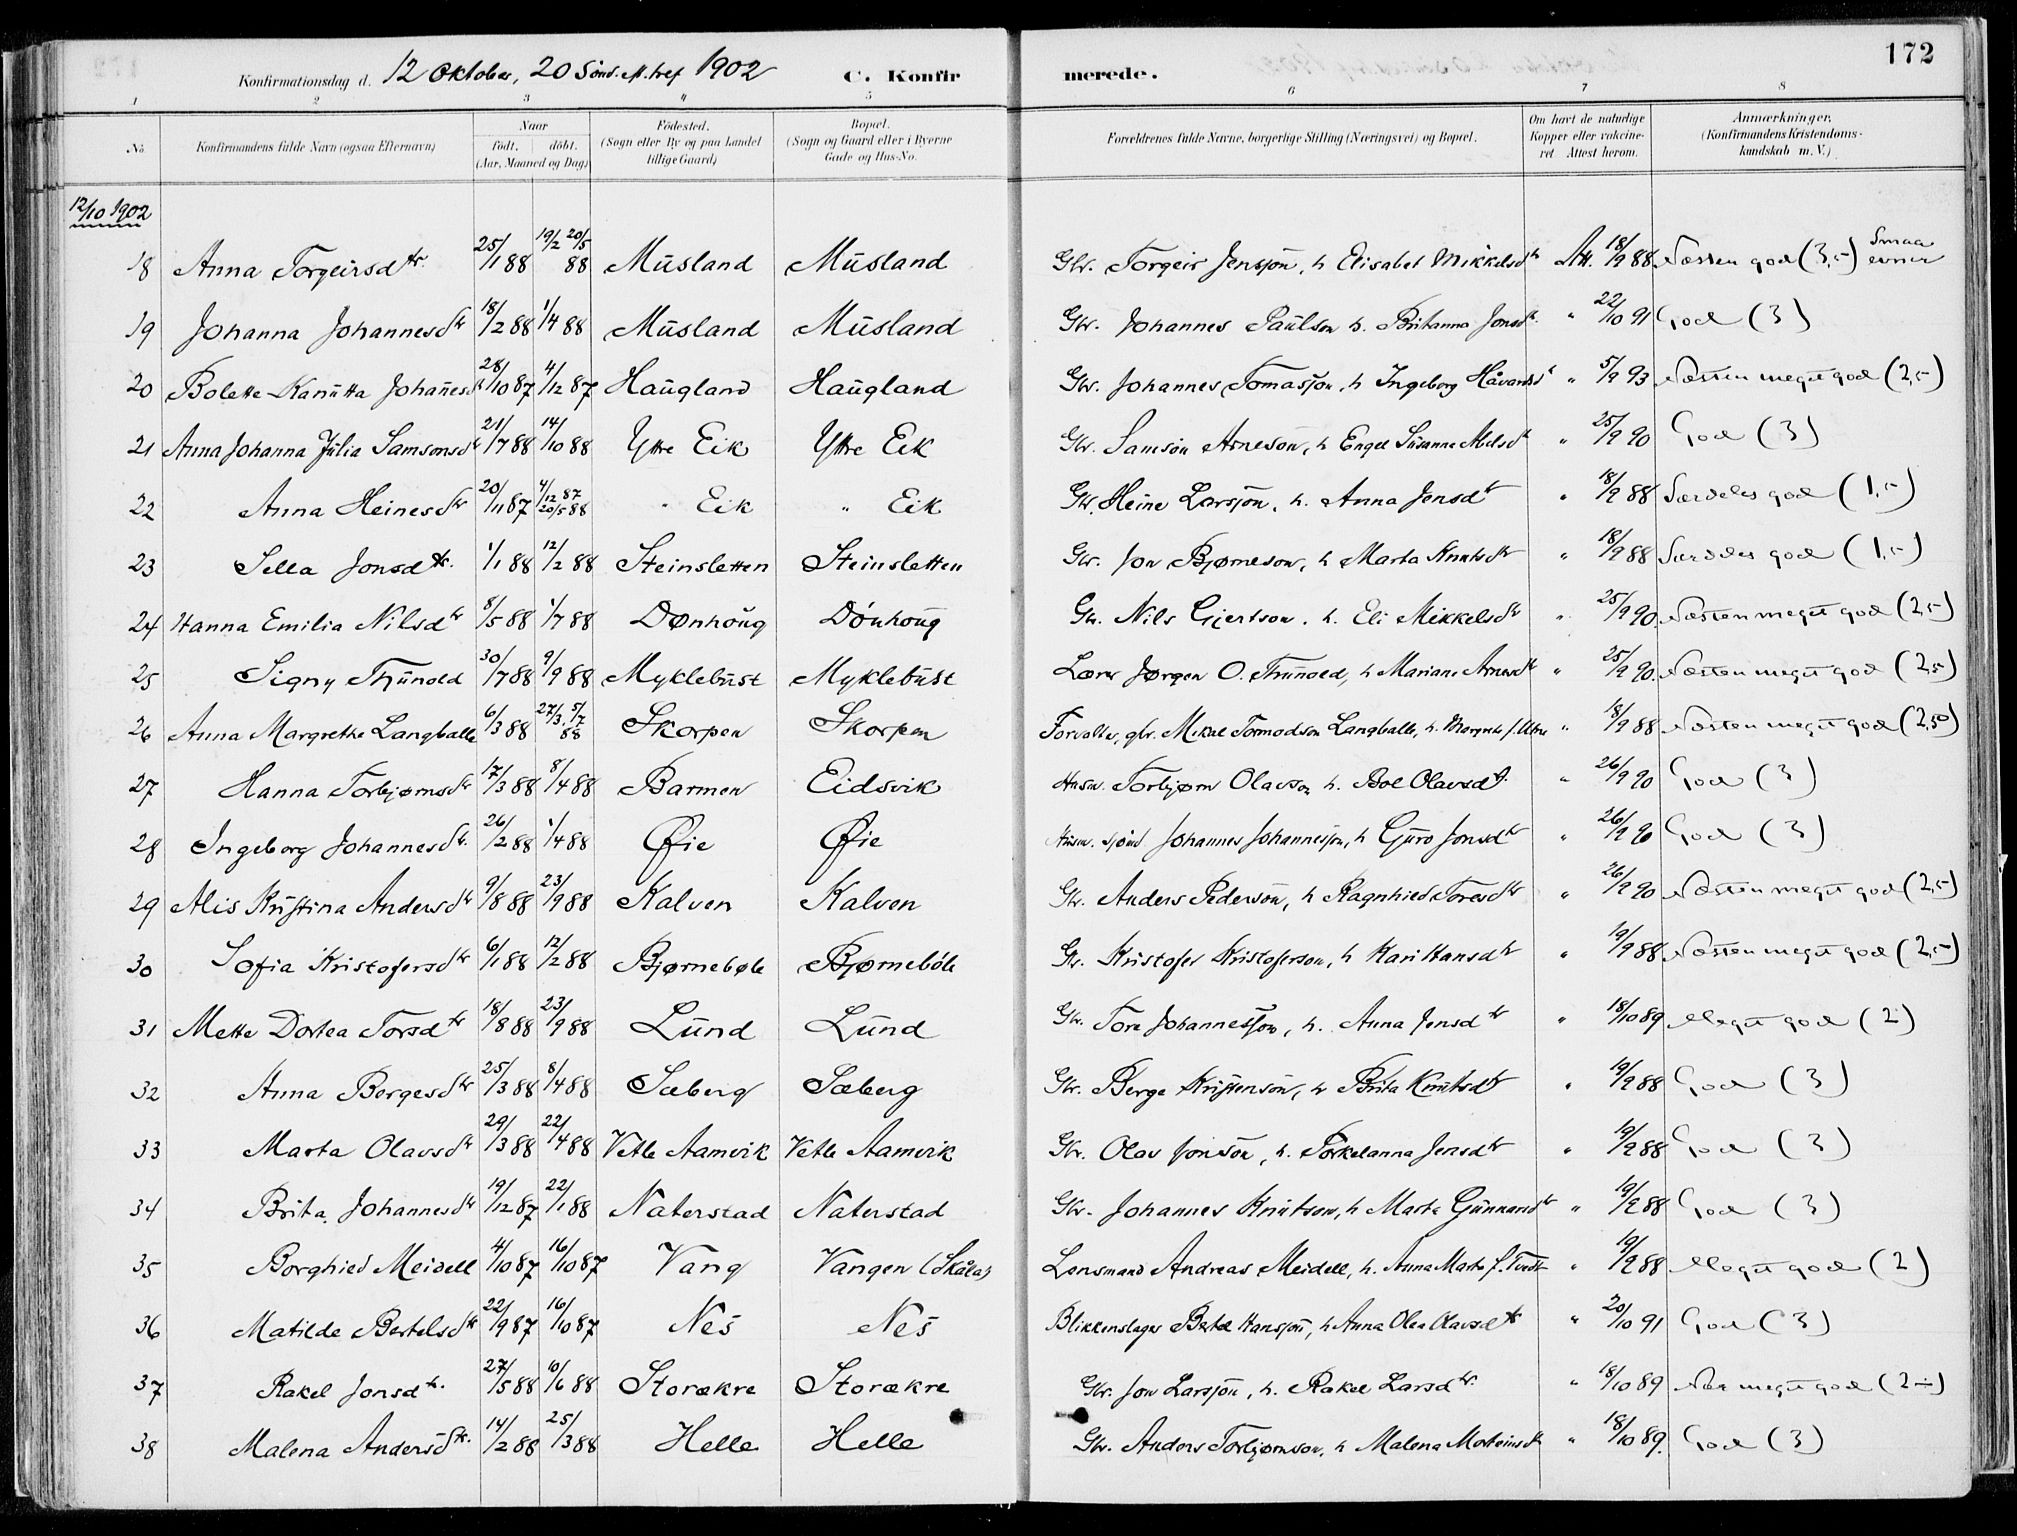 172
Konfirmationsdag d. 12 Oktober, 20 Sønd. e. tref 1902 C. Konfirmerede.
1 2 3 4 5 6 7 8
No Konfirmandens fulde Navn (ogsaa Efternavn) Naar født. døbt. (Aar, Maaned og Dag) Fødested. (Sogn eller By og paa Landet tillige Gaard) Bopæl. (Sogn og Gaard eller i Byerne Gade og Hus-No. Forældrenes fulde Navne, borgerlige Stilling (Næringsvei) og Bopæl. Om havt de naturlige Kopper eller vakcineret Attest herom. Anmærkninger, (Konfirmandens Kristendomskundskab m. V.)
12/10 1902
18 Anna Torgeirsdtr. 25/1 88 19/2 20/5 88 Musland Musland Gbr. Torgeir Jensson, h Elisabet Mikkelsdtr Att. 18/9 88 Næsten god (3,-) Smaa evner
19 Johanna Johannesdtr 18/2 88 1/4 88 Musland Musland Gbr. Johannes Paulson h. Britanna Jonsdtr. " 22/10 91 God (3)
20 Bolette Karutta Johanesdtr 28/10 87 4/12 87 Haugland Haugland Gbr. Johannes Tomasson, h Ingeborg Håvardsd " 5/9 93 Næsten meget god (2,-)
21 Anna Johanna Julia Samsonsdtr 21/7 88 14/10 88 Ytre Eik Ytre Eik Gbr. Samson Arneson, h Engel Susanne Nilsdtr " 25/9 90 God (3)
22 Anna Heinesdtr 20/11 87 4/12 87 20/5 88 " Eik " Eik Gbr. Heine Larsson, h. Anna Jensdtr " 18/9 88 Særdeles god (1,-)
23 Sella Jonsdtr. 1/1 88 12/2 88 Steinsletten Steinsletten Gbr. Jon Bjørneson, h Marta Knutsdtr " 18/9 88 Særdeles god (1,-)
24 Hanna Emilia Nilsdtr 8/5 88 1/7 88 Dønhoug Dönhoug Gbr. Nils Gjertson. h. Eli Mikkelsdtr " 25/9 90. Næsten meget god (2,-)
25 Signy Thunold 30/7 88 9/9 88 Myklebust Myklebust Lærer Jørgen O. Thunold, h Mariane Arnesdtr " 25/9 90. Næsten meget god (2,5)
26 Anna Margrethe Langballe 6/3 88 27/3 5/7 88 Skorpen Skorpen Forvalter, gbr. Mikal Tormodson Langballe, h. Margrete f. Utne " 18/9 88 Næsten meget god (2,50)
27 Hanna Torbjørnsdtr 17/3 88 8/4 88 Barmen Eidsvik Husm. Torbjørn Olavson h. Bol Olavsdtr. " 26/9 90 God (3)
28 Ingeborg Johannesdtr. 26/2 88 1/4 88 Øie Øie Husm. Johannes Johannesson, h Guro Jonsdtr " 26/9 90 God (3)
29 Alis Kristina Andersdtr 9/8 88 23/9 88 Kalven Kalven Gbr. Anders Pederson, h Ragnhild Toresdtr " 26/9 90 Næsten meget god (2,-)
30 Sofia Kristofersdtr 6/1 88 12/2 88 Bjørnebøle Bjørneböle Gbr. Kristofer Kristoferson, h Kari Hansdtr " 19/9 88 Næsten meget god (2,-)
31 Mette Dortea Torsdtr 18/8 88 23/9 88 Lund Lund Gbr. Tore Johannesson, h. Anna Jensdtr " 18/10 89 Meget god (2)
32 Anna Bergesdtr 25/3 88 8/4 88 Sæberg Sæberg Gbr. Berge Kristenson, h Brita Knutsdtr " 19/9 88 God (3)
33 Marta Olavsdtr 29/3 88 22/4 88 Vetle Aamvik Vetle Aamvik Gbr. Olav Jonson, h. Torkelanna Jensdtr " 19/9 88 God (3)
34 Brita Johannesdtr 19/12 87 22/1 88 Naterstad Naterstad Gbr. Johannes Knutson, h Marta Gunnarsdtr " 19/9 88 God (3)
35 Borghild Meidell 4/10 87 16/10 87 Vang Vangen (Skåla) Lensmand Andreas Meidell, h. Anna Marta f. Tvedt " 19/9 88 Meget god (2)
36 Matilde Bertelsdtr 22/9 87 16/10 87 Nes Nes Blikkenslager Bertel Hansson, h Anna Olea Olavsdtr " 20/10 91 God (3)
37 Rakel Jonsdtr. 27/5 88 10/6 88 Storækre Storækre Gbr. Jon Larsson, h. Rakel Larsdtr. " 18/10 89 Nær meget god (2-)
38 Malena Andersdtr. 14/2 88 25/3 88 Helle Helle Gbr. Anders Torbjørnson, h Malena Morteinsdtr " 18/10 89. God (3)